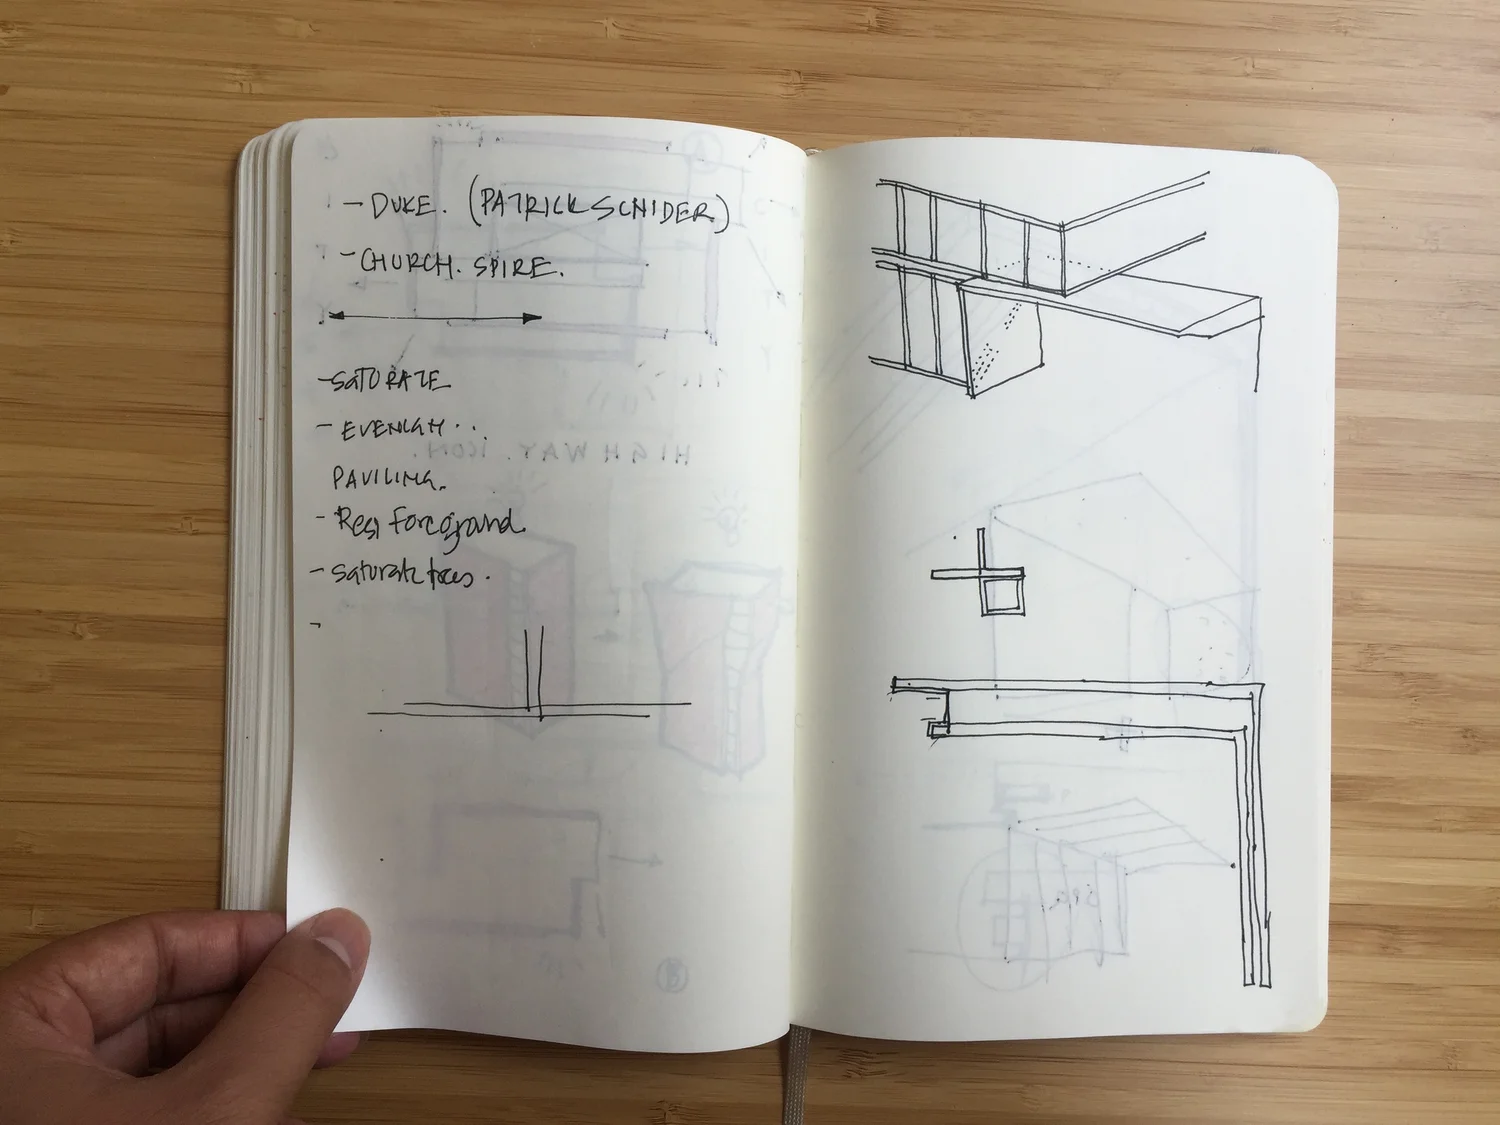 - DUKE. (PATRICK SCHIDER)
- CHURCH. SPIRE.
- SATURATE
- EVENLGH...
PAVILING.
- Res. Foreground.
- saturate trees.
HIGHWAY. ICON.